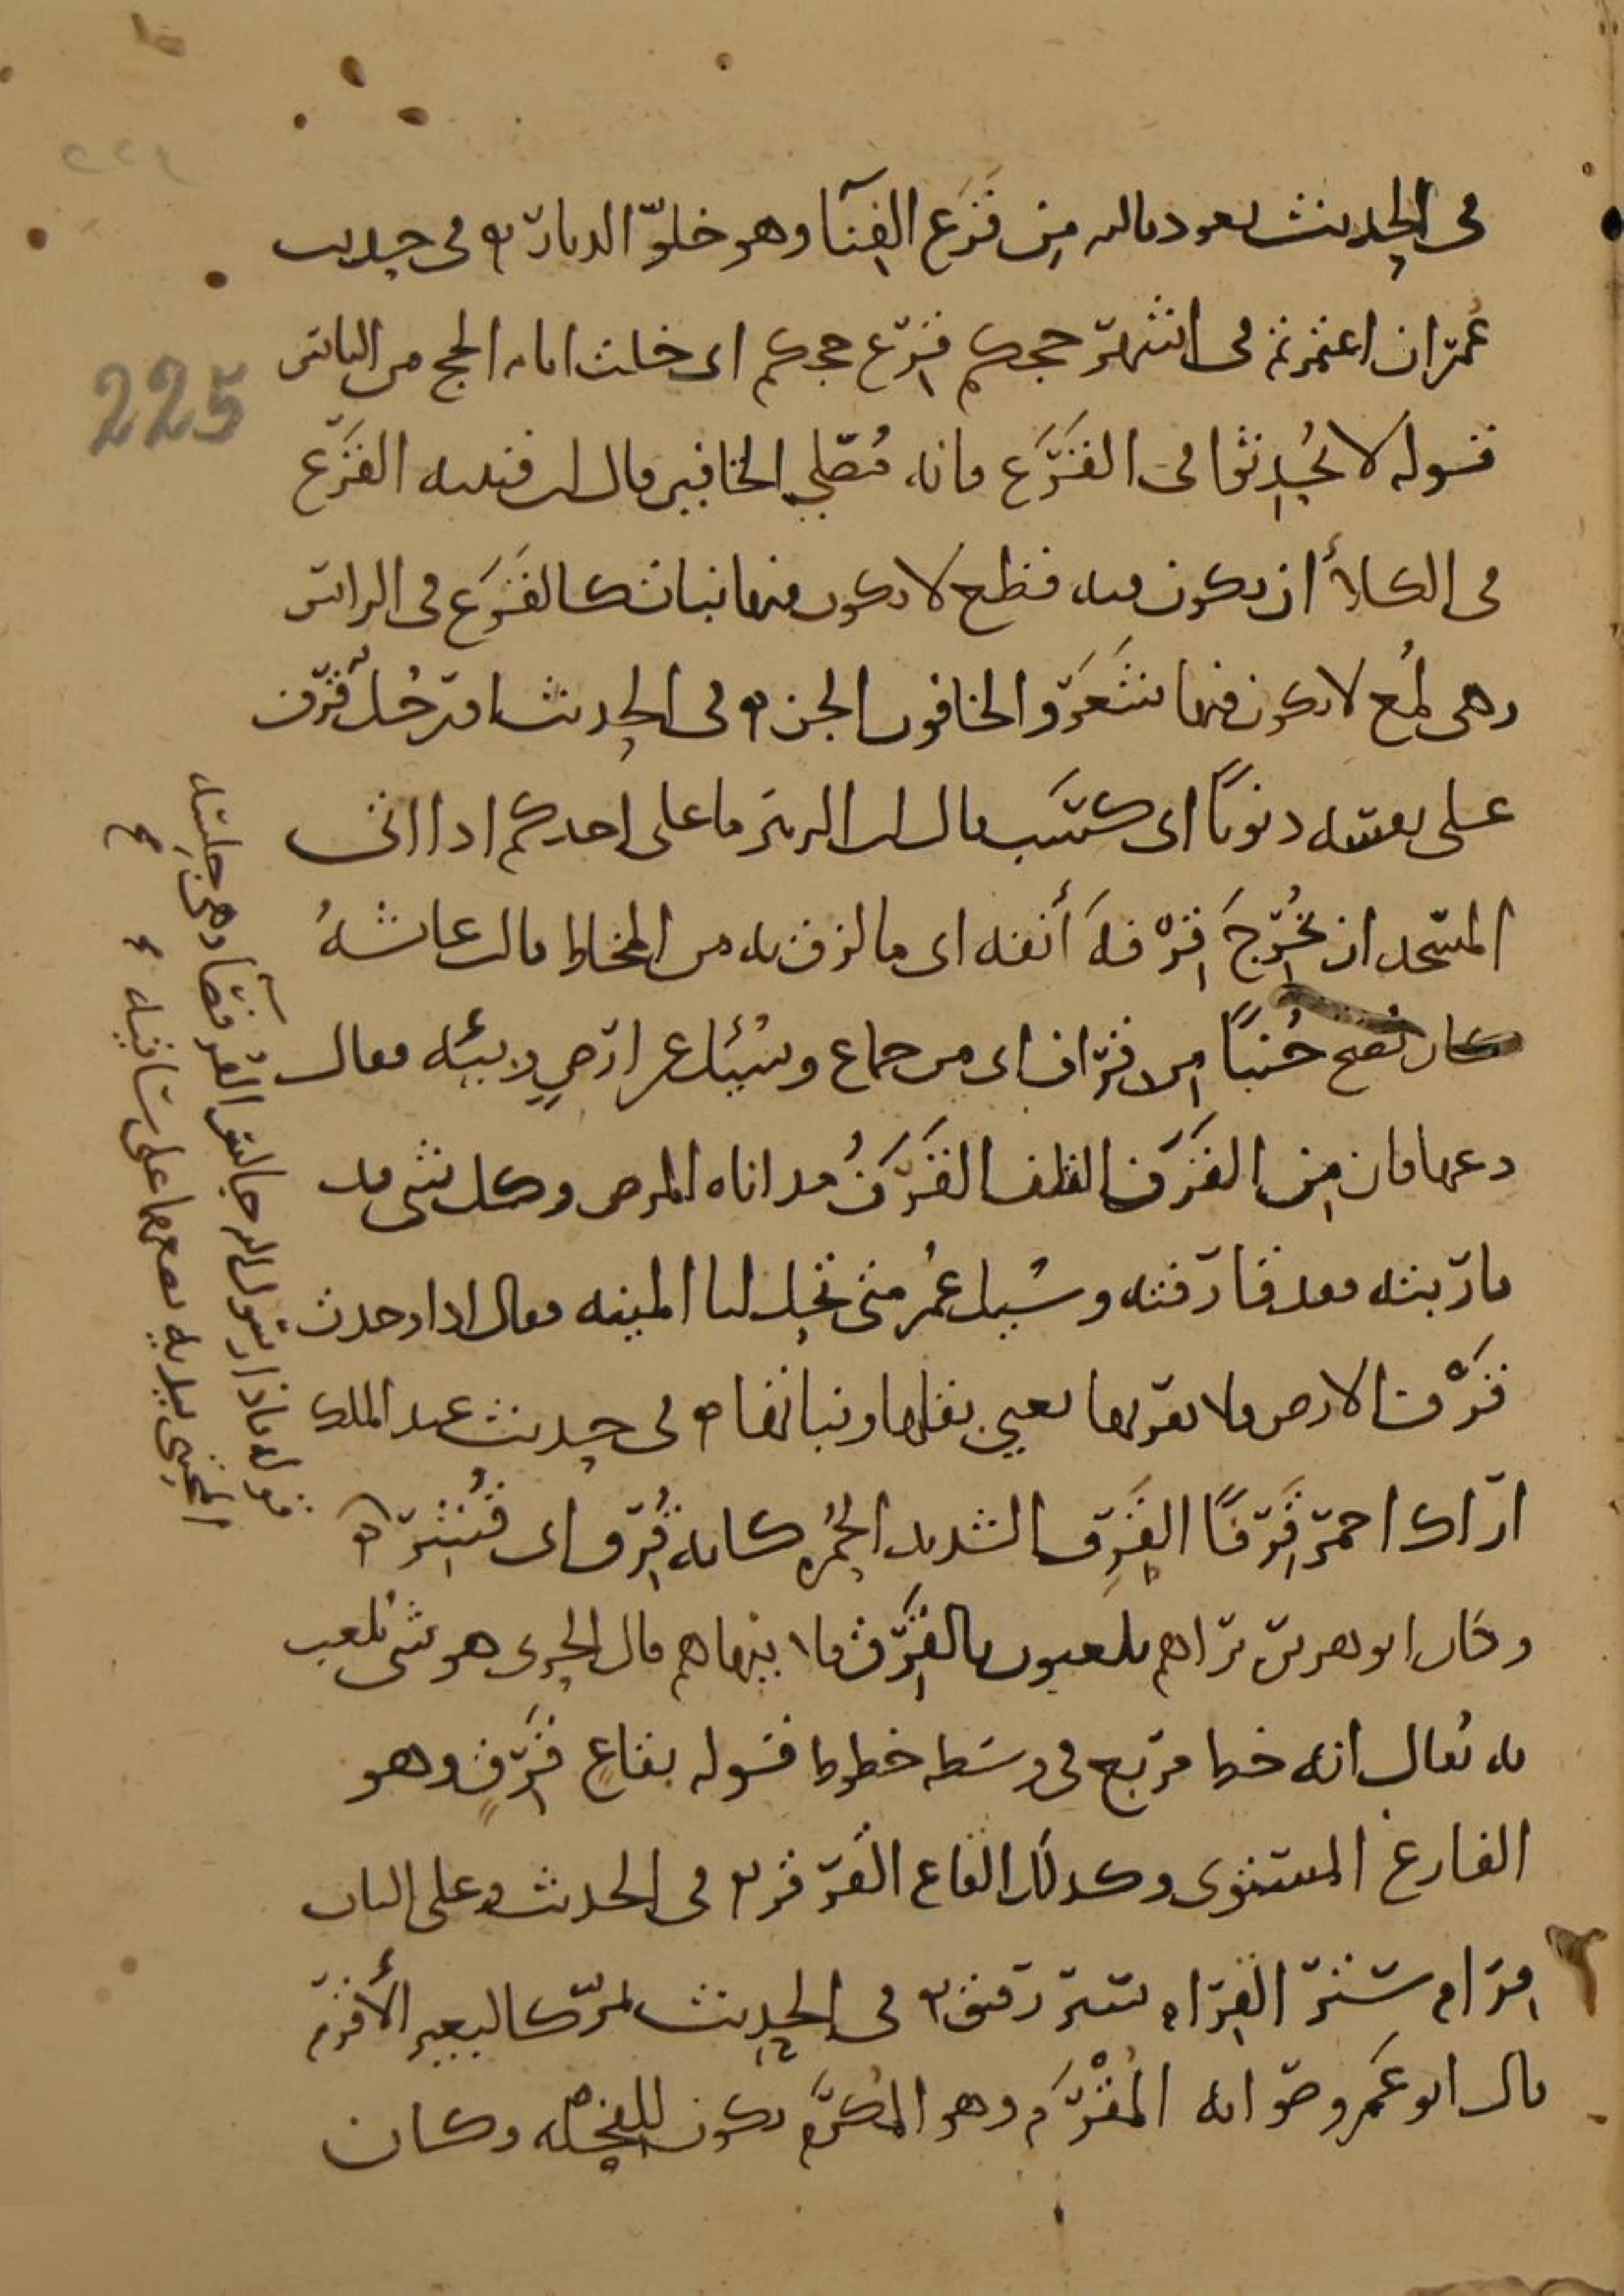 في الحديث نعوذ بالله من قَرَعِ الفِنَآ وهو خلوّ الديار ۞ في حديث
عُمَر ان اعتمرتم في اشهر حجكم قَرِع حجكم اى خلت ايام الحج من الناس
قوله لا تُحْدِثوا في القَرَع فانه مُصَلّى الخافين قال ابن قتيبه القَرَع
في الكلأ ان يكون فيه قطع لا يكون فيها نبات كالقَزَع في الراس
وهي لُمَع لا يكون فيها شَعَر والخافون الجن ۞ في الحديث رجُل قَرَف
على نفسه ذنوبًا اى كسَب قال ابن الزبير ما على احدكم اذا اتى
المسجد ان يُخْرِجَ قِرْفَةَ أنفه اى ما لزق به من المخاط قالت عائشةُ
كان يصبح جُنبًا من قِراف اى من جماع وسُئل عن ارضٍ وبيئه فقال
دعها فان مِن القَرَف التلف القَرَفُ مداناه المرض وكل شى قد
قاربته فقد قارفته وسُئل عُمر متى تحِل لنا الميته فقال اذا وجدت
قَرْف الارض فلا تقربها يعني بقلها ونباتها ۞ في حديث عبد الملك
اراك احمر قَرِفًا القَرِف الشديد الحُمْره كانه قُرِف اى قُشِرَ ۞
وكان ابو هريره يراهم يلعبون بالقِرْق فلا ينهاهم قال الحربى هو شى يُلعب
به يُقال انه خط مربع في وسَطه خطوط قوله بقاعٍ قَرِقٍ وهو
الفارغ المستوى وكذلك القاع القَرقر ۞ في الحديث وعلى الباب
قِرام سَتر القِرام ستر رقيق ۞ في الحديث تمر كالبعير الأقرم
قال ابو عَمرو صوابه المُقْرَم وهو المُكرَّم يكون للفِحْله وكان
فقوله فاذا رسول الله جالس القُرفُصَآ وهي جِلسَة
المحتبى بيديه يضعهما على ساقيه
225